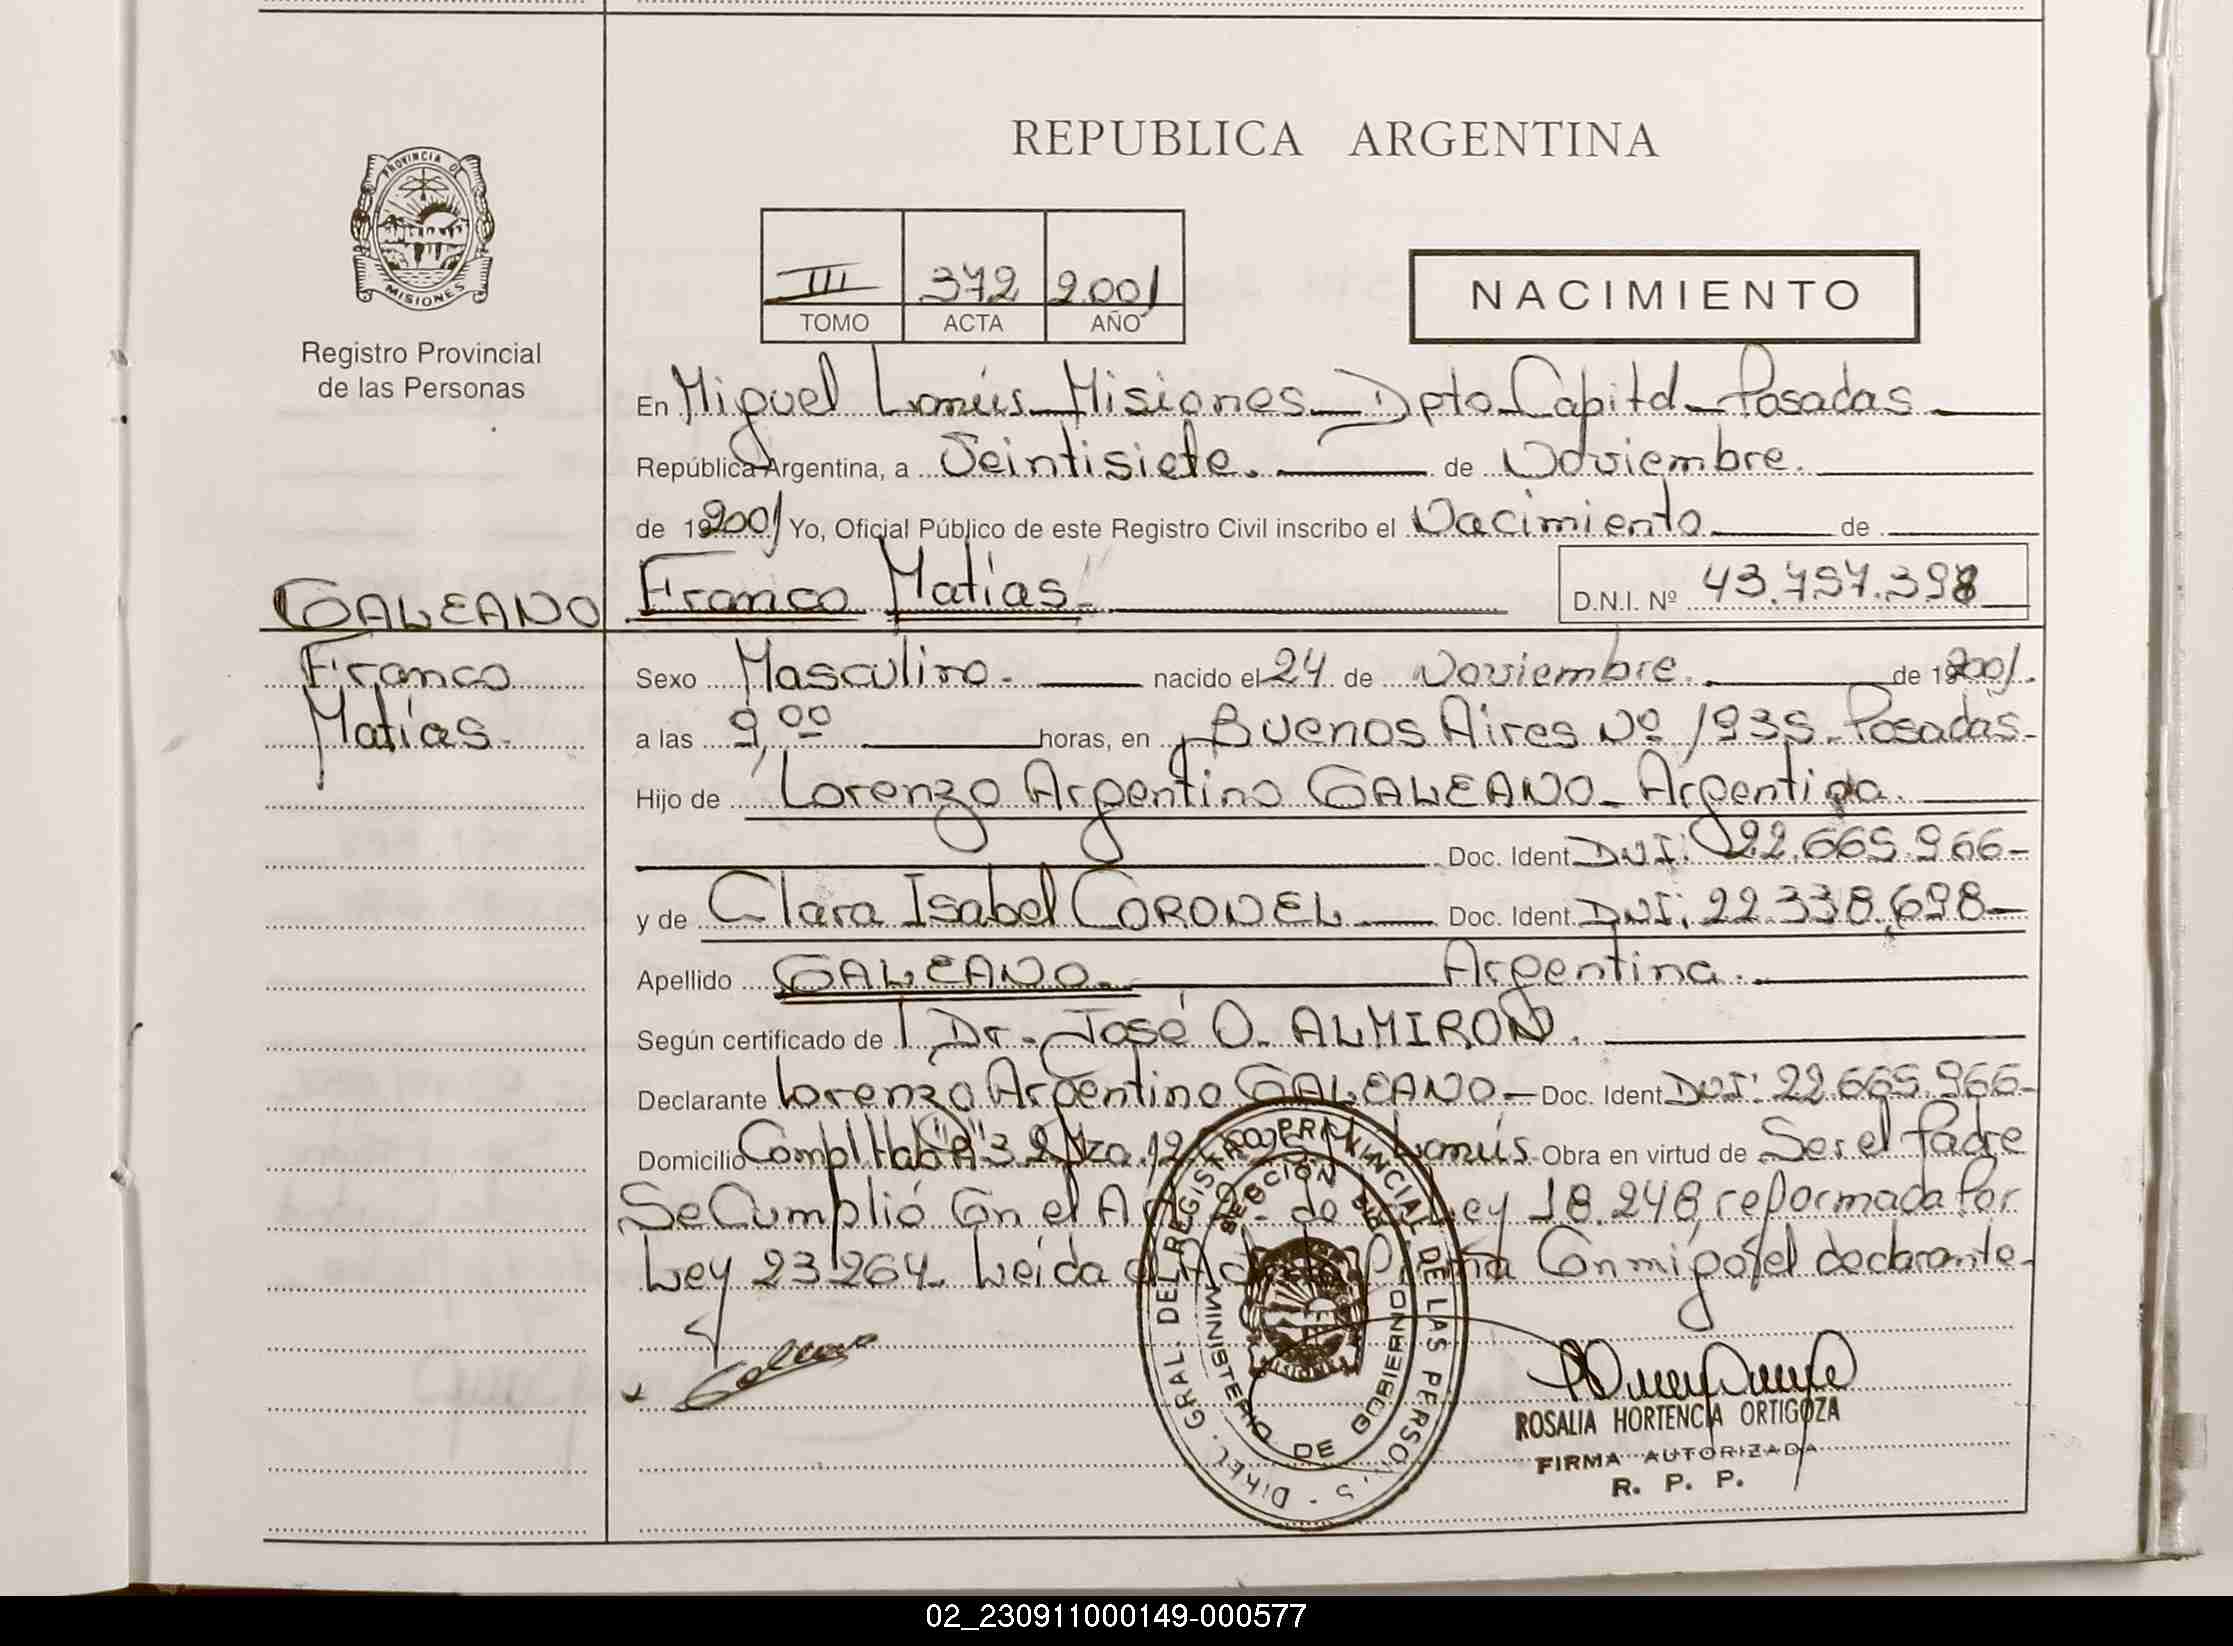 REPUBLICA ARGENTINA
PROVINCIA DE
MISIONES
Registro Provincial
de las Personas
III 372 2001
TOMO ACTA AÑO
NACIMIENTO
En Miguel Lanús Misiones Dpto Capital Posadas
República Argentina, a Veintisiete. de Noviembre.
de 19 2001 Yo, Oficial Público de este Registro Civil inscribo el Nacimiento de
GALEANO Franco Matías D.N.I. Nº
Franco
Matías.
Sexo Masculino. nacido el 24 de Noviembre. de 19 2001.
a las 9,00 horas, en Buenos Aires Nº 1935 - Posadas
Hijo de Lorenzo Argentino GALEANO - Argentina.
Doc. Ident DNI: 22.665.966-
y de Clara Isabel CORONEL Doc. Ident DNI: 22.338.698-
Apellido GALEANO. Argentina.
Según certificado de Dr. José O. ALMIRON.
Declarante Lorenzo Argentino GALEANO - Doc. Ident DNI: 22.665.966-
Domicilio Lanús Obra en virtud de Ser el Padre
Se Cumplió Con el de Ley 18.248, reformada Por
Ley 23.264. Leída el Acta Firma Conmigo, el declarante.
DIREC. GRAL. DEL REGISTRO PROVINCIAL DE LAS PERSONAS
MINISTERIO DE GOBIERNO
ROSALIA HORTENCIA ORTIGOZA
FIRMA AUTORIZADA
R. P. P.
02_230911000149-000577